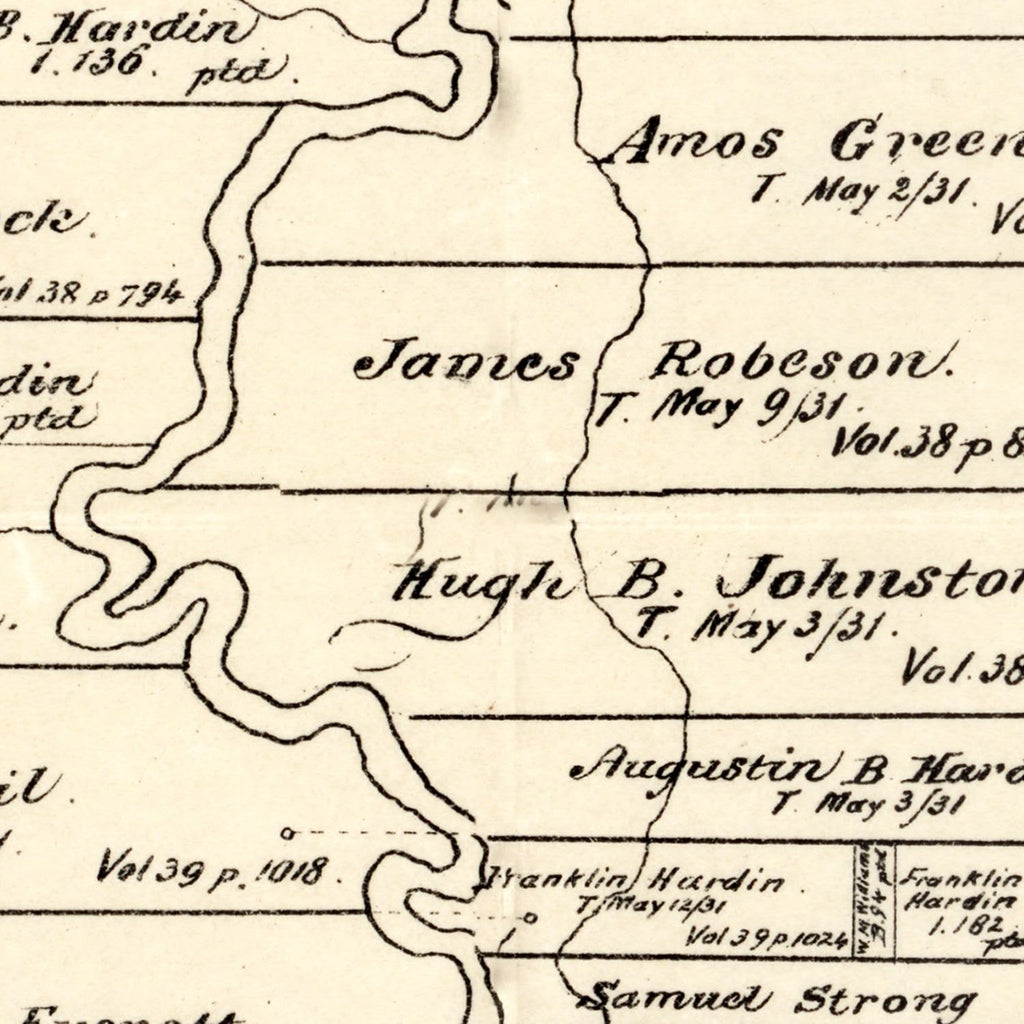 B. Hardin
1.136. ptd.
Amos Green
T. May 2/31.
ck.
Vol 38 p 794
James Robeson.
T. May 9/31.
Vol. 38 p 8
din
ptd
Hugh B. Johnston
T. May 3/31.
Vol. 38
Augustin B Hard
T. May 3/31
il.
Vol 39 p. 1018.
Franklin Hardin.
T. May 12/31
Vol 39 p. 1024
B. 94 ptd
Franklin
Hardin
1.182.
ptd
Samuel Strong